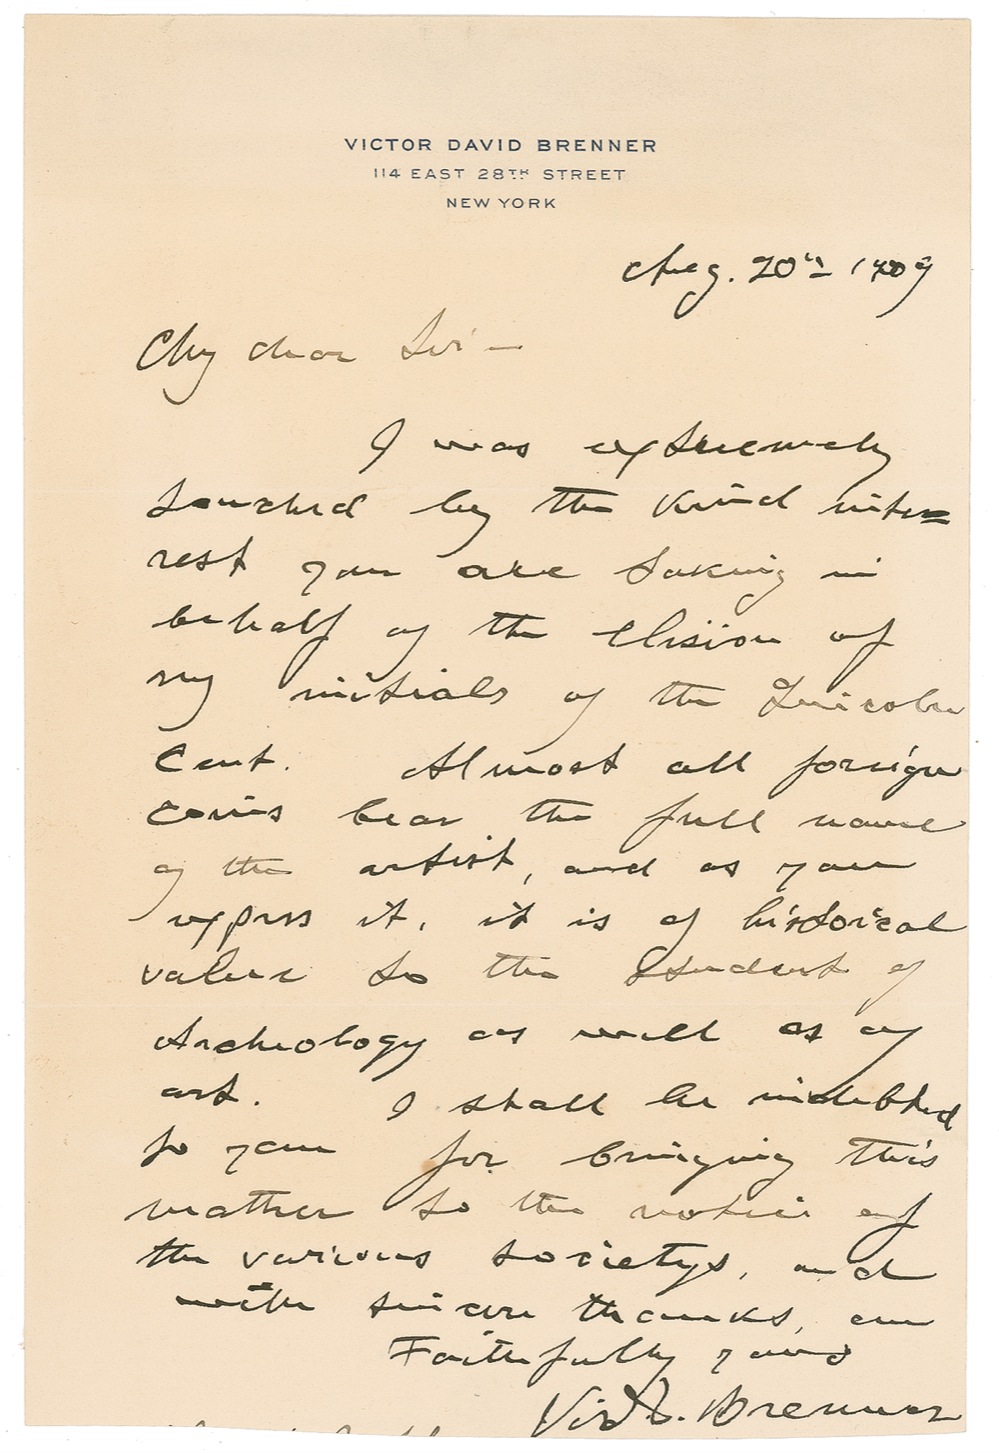 VICTOR DAVID BRENNER
114 EAST 28TH STREET
NEW YORK
Aug. 20th 1909
My dear Sir —
I was extremely
touched by the kind inte=
rest you are taking in
behalf of the Elision of
my initials of the Lincoln
Cent. Almost all foreign
coins bear the full name
of the artist, and as you
expres it, it is of historical
value to the student of
Archeology as well as of
art. I shall be indebted
to you for bringing this
matter to the notice of
the various societys, and
with sincere thanks, am
Faithfully yours
Vic D. Brenner